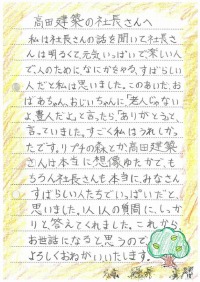 高田建築の社長さんへ
私は社長さんの話を聞いて、社長さ
んは明るくて、元気いっぱいで楽しい人
で、人のために、なにかをやる、すばらしい
人だと私は思いました。このあいだ、お
ばあちゃん、おじいちゃんに、「老人じゃない
よ、豊人だよ」と言ったら「ありがとう」と、
言っていました。すごく私はうれしかっ
たです。リブチの森とか高田建築
さんは本当に想像ゆたかで、も
ちろん社長さんも本当に、みなさん
すばらしい人たちでいっぱいだと、
思いました。1人1人の質問に、しっか
りと答えてくれました。これから
お世話になると思うので
よろしくおねがいいたします。